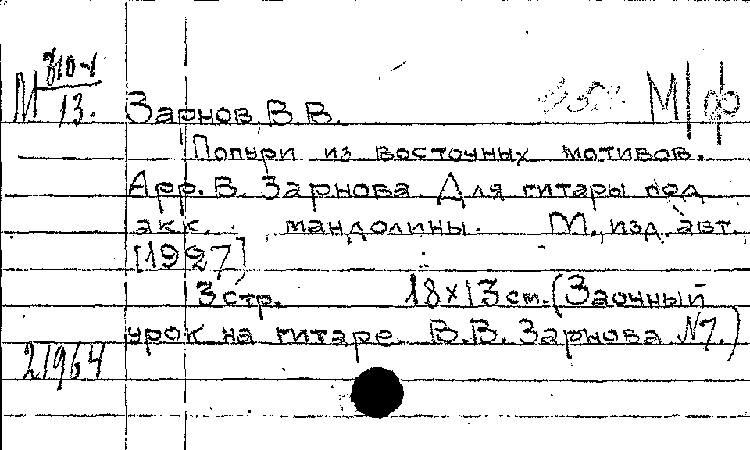 М 810-1/13.
М/ф
Зарнов В.В.
Попури из восточных мотивов.
Арр. В. Зарнова Для гитары под
акк. мандолины. М., изд. авт.,
[1927]
3 стр. 18х13 см. (Заочный
урок на гитаре В.В. Зарнова №7.)
21964